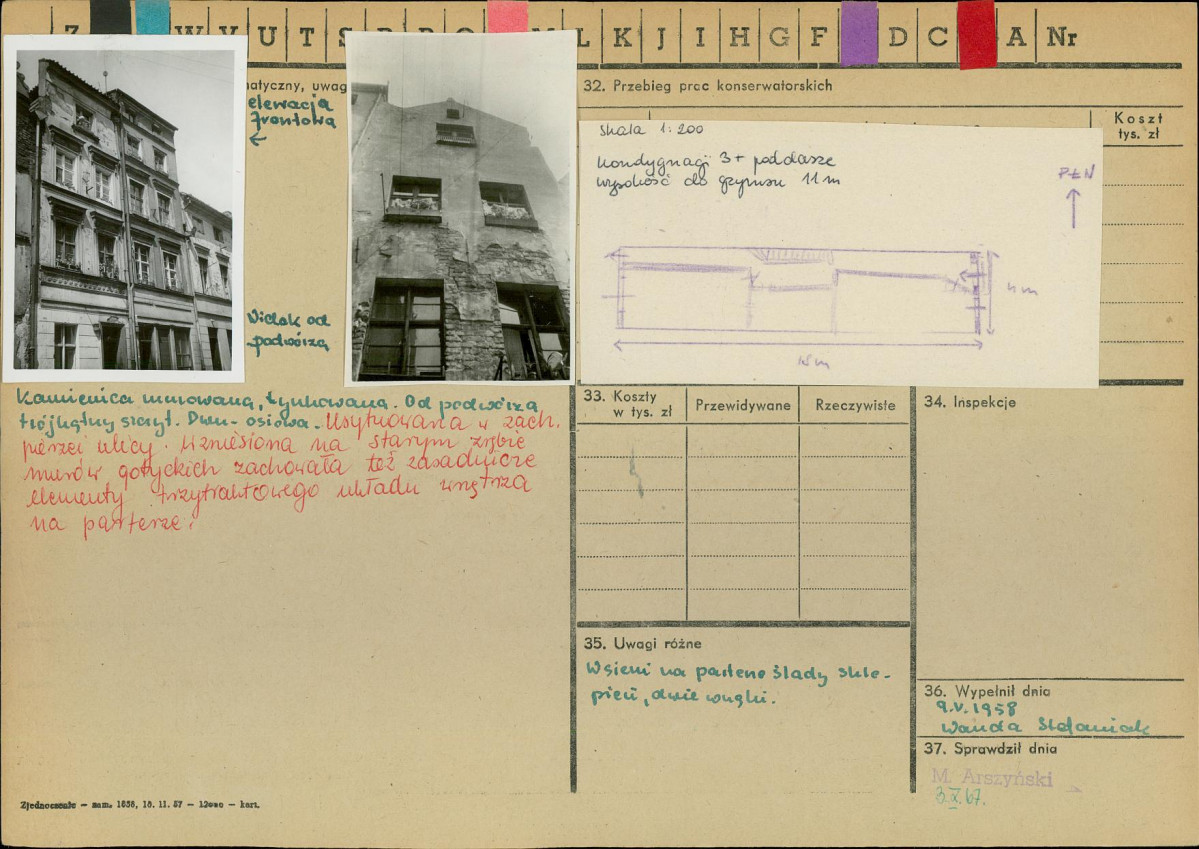 Z W V U T S R P O M L K J I H G F D C A Nr
matyczny, uwag
elewacja
frontowa
←
Widok od
podwórza
Kamienica murowana, tynkowana. Od podwórza
trójkątny szczyt. Dwu-osiowa. Usytuowana w zach.
pierzei ulicy. Wzniesiona na starym zrębie
murów gotyckich zachowała też zasadnicze
elementy trzytraktowego układu wnętrza
na parterze.
32. Przebieg prac konserwatorskich
Koszt
tys. zł
skala 1:200
kondygnacji 3 + poddasze
wysokość do gzymsu 11 m
PŁN
11 m
15 m
33. Koszty
w tys. zł
Przewidywane
Rzeczywiste
34. Inspekcje
35. Uwagi różne
W sieni na parterze ślady skle-
pień, dwie wnęki.
36. Wypełnił dnia
9.V.1958
Wanda Stefaniak
37. Sprawdził dnia
M. Arszyński
3.X.67.
Zjednoczenie — zam. 1838, 18. 11. 57 — 12000 — kart.